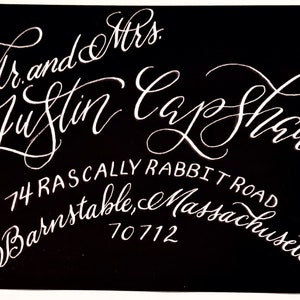 r. and Mrs.
Austin Capshaw
74 RASCALLY RABBIT ROAD
Barnstable, Massachuset
70712